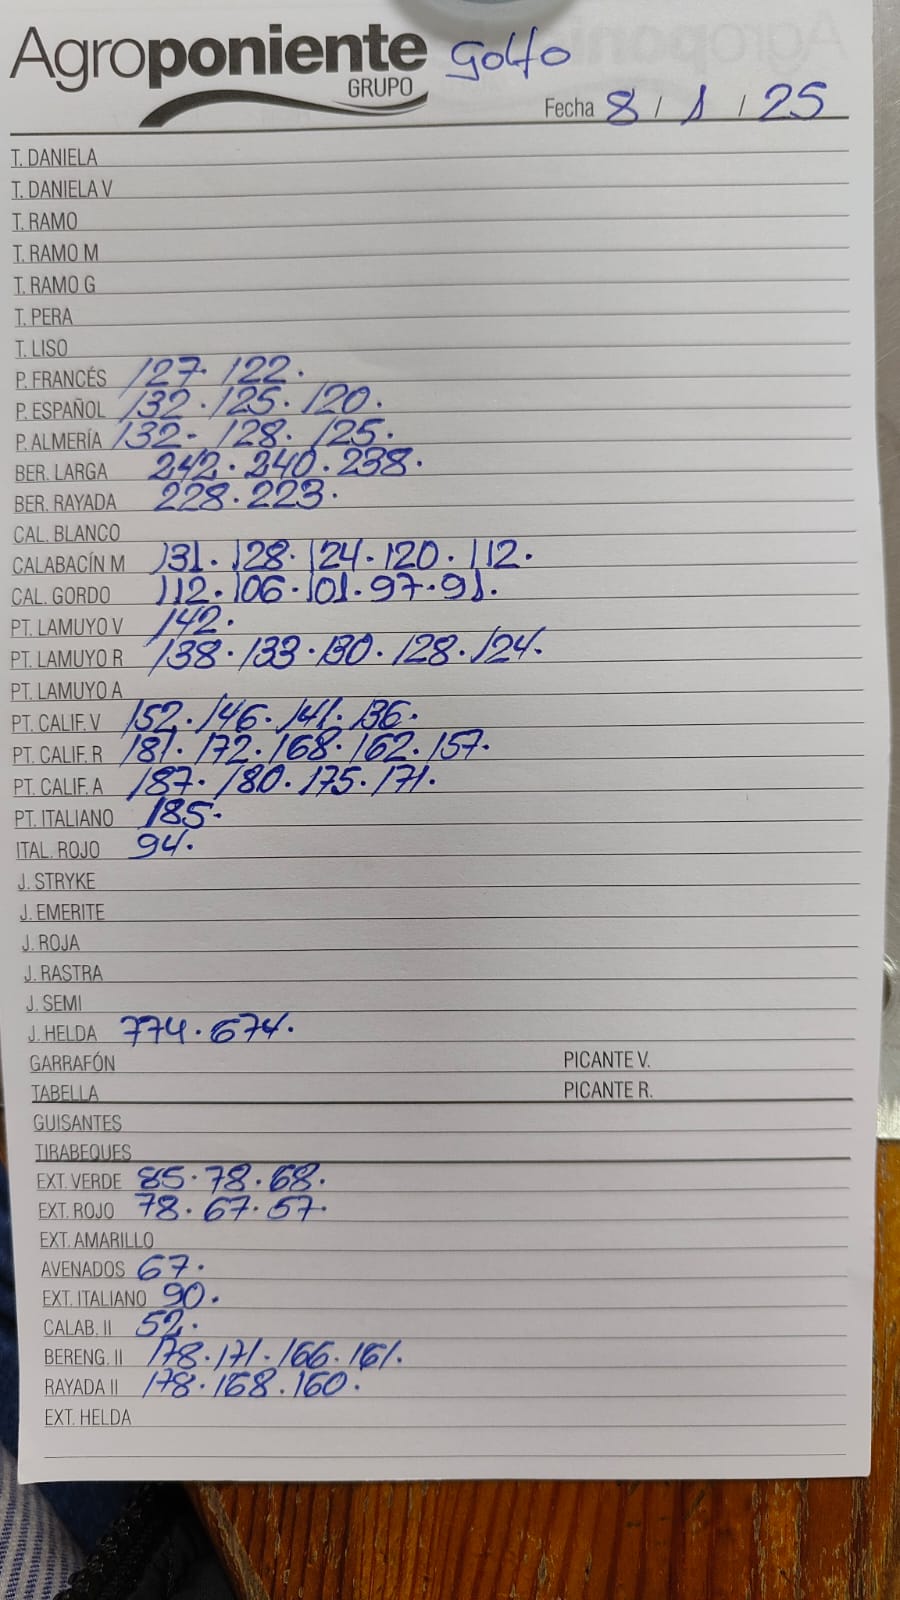 Agroponiente Golfo
GRUPO
Fecha 8 / 1 / 25
T. DANIELA
T. DANIELA V
T. RAMO
T. RAMO M
T. RAMO G
T. PERA
T. LISO
P. FRANCÉS 127. 122.
P. ESPAÑOL 132. 125. 120.
P. ALMERÍA 132- 128. 125.
BER. LARGA 242. 240. 238.
BER. RAYADA 228. 223.
CAL. BLANCO
CALABACÍN M 131. 128. 124. 120. 112.
CAL. GORDO 112. 106. 101. 97. 91.
PT. LAMUYO V 142.
PT. LAMUYO R 138. 133. 130. 128. 124.
PT. LAMUYO A
PT. CALIF. V 152. 146. 141. 136.
PT. CALIF. R 181. 172. 168. 162. 157.
PT. CALIF. A 187. 180. 175. 171.
PT. ITALIANO 185.
ITAL. ROJO 94.
J. STRYKE
J. EMERITE
J. ROJA
J. RASTRA
J. SEMI
J. HELDA 774. 674.
GARRAFÓN PICANTE V.
TABELLA PICANTE R.
GUISANTES
TIRABEQUES
EXT. VERDE 85. 78. 68.
EXT. ROJO 78. 67. 57.
EXT. AMARILLO
AVENADOS 67.
EXT. ITALIANO 90.
CALAB. II 52.
BERENG. II 178. 171. 166. 161.
RAYADA II 178. 168. 160.
EXT. HELDA